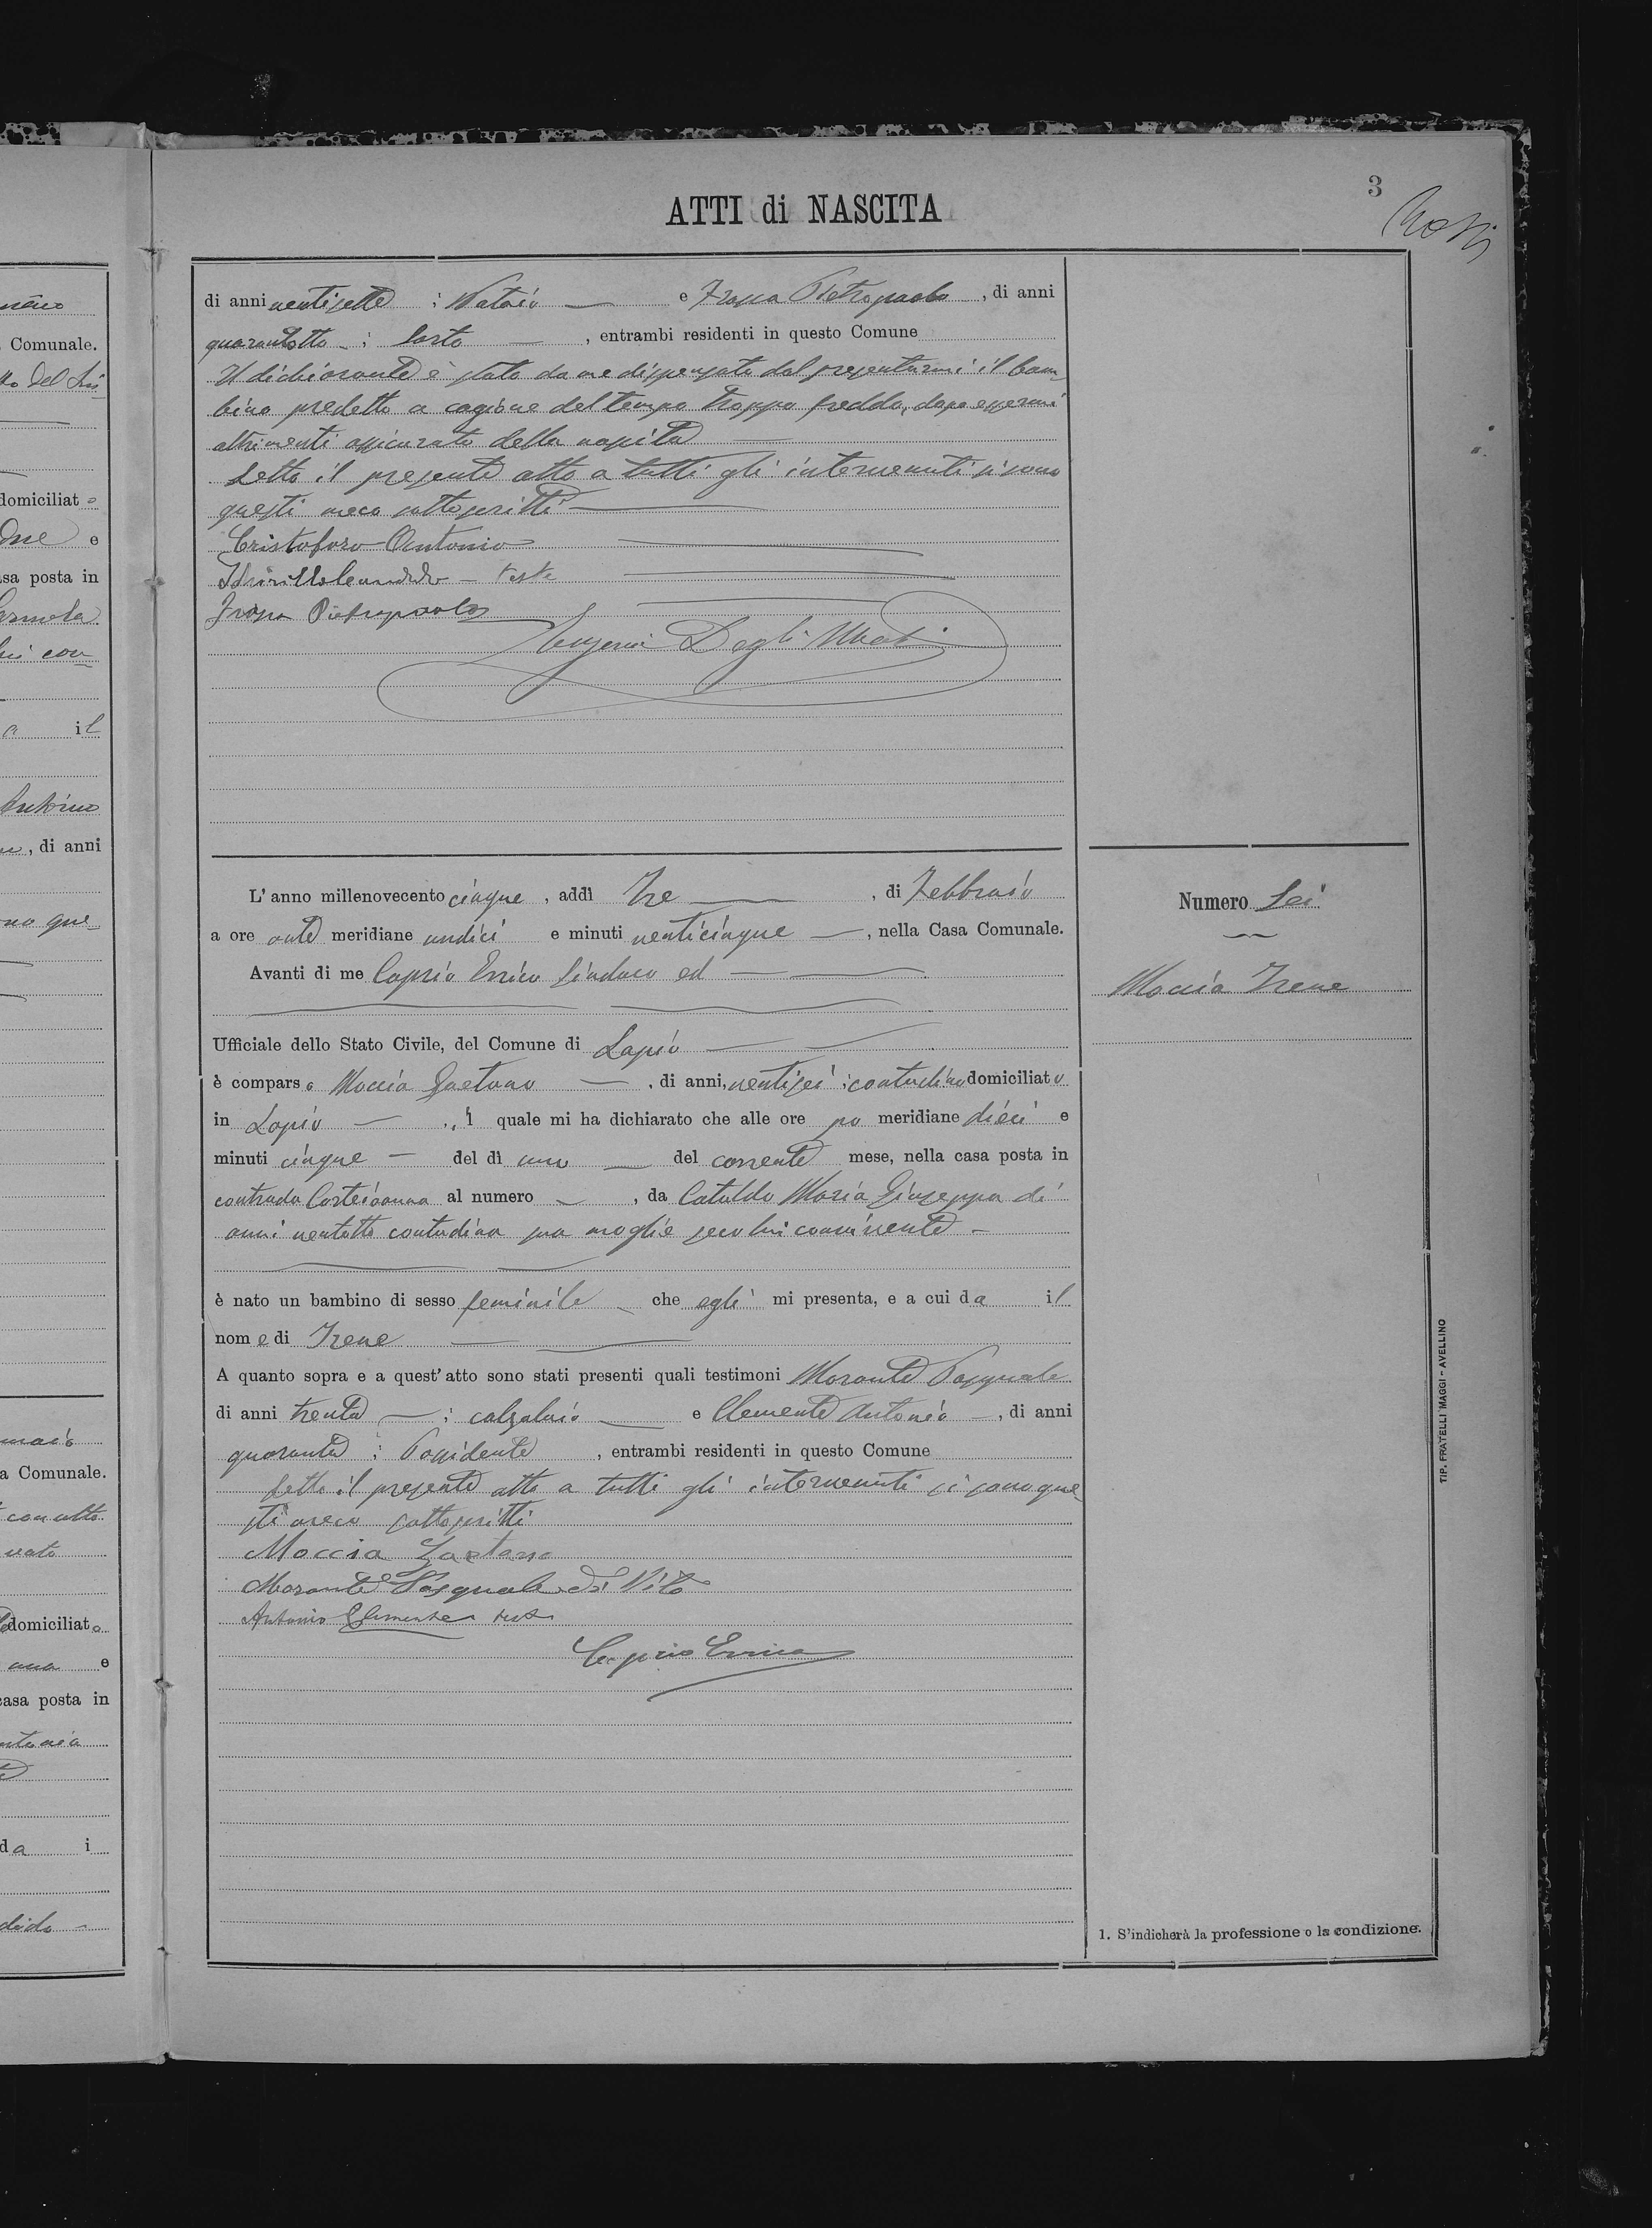 3
ATTI di NASCITA
di anni ventisette ; Notaio e Frossa Pietropaolo, di anni
quarantotto ; Sarto, entrambi residenti in questo Comune
Il dichiarante è stato da me dispensato dal presentarmi il bam-
bino predetto a cagione del tempo troppo freddo, dopo essermi
altrimenti assicurato della nascita
Letto il presente atto a tutti gli intervenuti si sono
questi meco sottoscritti
Cristofaro Antonio
teste
Pietropaolo
Degli
L'anno millenovecento cinque, addì Tre, di Febbraio
a ore ante meridiane undici e minuti venticinque, nella Casa Comunale.
Avanti di me Caprio Errico Sindaco ed
Ufficiale dello Stato Civile, del Comune di Lapio
è comparso Moccia Gaetano, di anni, ventisei ; contadino domiciliato
in Lapio, il quale mi ha dichiarato che alle ore po meridiane dieci e
minuti cinque del dì uno del corrente mese, nella casa posta in
contrada al numero, da Cataldo Maria Giuseppa di
anni ventotto contadina sua moglie seco lui convivente
è nato un bambino di sesso feminile che egli mi presenta, e a cui da il
nome di Irene
A quanto sopra e a quest'atto sono stati presenti quali testimoni Morante Pasquale
di anni trenta ; calzolaio e Clemente Antonio, di anni
quaranta ; Possidente, entrambi residenti in questo Comune
Letto il presente atto a tutti gli intervenuti si sono que-
sti meco sottoscritti
Moccia Gaetano
Morante Pasquale di Vito
Antonio Clemente teste
Caprio Errico
Numero Sei
Moccia Irene
1. S'indicherà la professione o la condizione.
TIP. FRATELLI MAGGI - AVELLINO
Comunale.
domiciliato
e
casa posta in
a il
, di anni
a Comunale.
domiciliato
e
casa posta in
da i